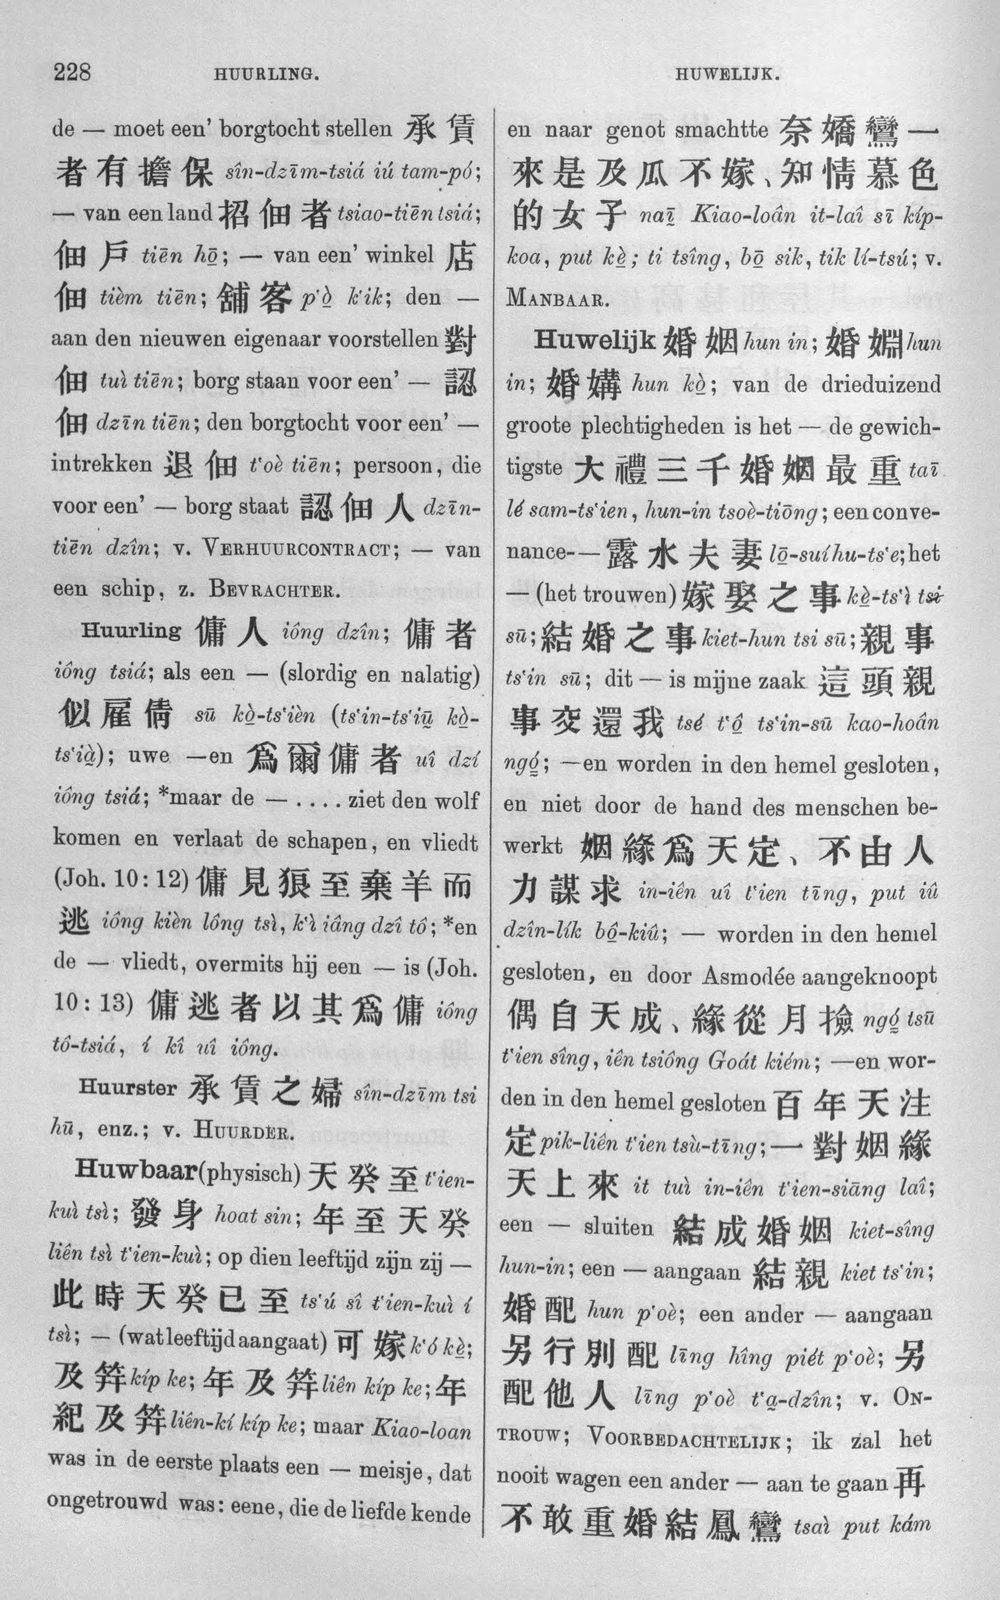 228
HUURLING.
HUWELIJK.
de — moet een' borgtocht stellen 承賃
者有擔保 sîn-dzīm-tsiá iú tam-pó;
— van een land 招佃者 tsiao-tiēn tsiá;
佃戶 tiēn hō̤; — van een' winkel 店
佃 tièm tiēn; 舖客 p'ò̤ k'ik; den —
aan den nieuwen eigenaar voorstellen 對
佃 tuì tiēn; borg staan voor een' — 認
佃 dzīn tiēn; den borgtocht voor een' —
intrekken 退佃 t'oè tiēn; persoon, die
voor een' — borg staat 認佃人 dzīn-
tiēn dzîn; v. VERHUURCONTRACT; — van
een schip, z. BEVRACHTER.
Huurling 傭人 iông dzîn; 傭者
iông tsiá; als een — (slordig en nalatig)
似雇倩 sū kò̤-ts'ièn (ts'in-ts'iṳ̄ kò̤-
ts'ià̤); uwe —en 爲爾傭者 uî dzí
iông tsiá; *maar de — .... ziet den wolf
komen en verlaat de schapen, en vliedt
(Joh. 10: 12) 傭見狼至棄羊而
逃 iông kièn lông tsì, k'ì iâng dzî tô; *en
de — vliedt, overmits hij een — is (Joh.
10: 13) 傭逃者以其爲傭 iông
tô-tsiá, í kî uî iông.
Huurster 承賃之婦 sîn-dzīm tsi
hū, enz.; v. HUURDER.
Huwbaar (physisch) 天癸至 t'ien-
kuì tsì; 發身 hoat sin; 年至天癸
liên tsì t'ien-kuì; op dien leeftijd zijn zij —
此時天癸已至 ts'ú sî t'ien-kuì í
tsì; — (wat leeftijd aangaat) 可嫁 k'ó kè̤;
及筓 kíp ke; 年及筓 liên kíp ke; 年
紀及筓 liên-kí kíp ke; maar Kiao-loan
was in de eerste plaats een — meisje, dat
ongetrouwd was: eene, die de liefde kende
en naar genot smachtte 奈嬌鸞一
來是及瓜不嫁、知情慕色
的女子 naī̤ Kiao-loân it-laî sī kíp-
koa, put kè̤; ti tsîng, bō̤ sik, tik lí-tsú; v.
MANBAAR.
Huwelijk 婚姻 hun in; 婚婣 hun
in; 婚媾 hun kò̤; van de drieduizend
groote plechtigheden is het — de gewich-
tigste 大禮三千婚姻最重 taī
lé sam-ts'ien, hun-in tsoè-tiōng; een conve-
nance-— 露水夫妻 lō̤-suí hu-ts'e; het
— (het trouwen) 嫁娶之事 kè̤-ts'ì tsi
sū; 結婚之事 kiet-hun tsi sū; 親事
ts'in sū; dit — is mijne zaak 這頭親
事交還我 tsé t'ô̤ ts'in-sū kao-hoân
ngó̤; —en worden in den hemel gesloten,
en niet door de hand des menschen be-
werkt 姻緣爲天定、不由人
力謀求 in-iên uî t'ien tīng, put iû
dzîn-lík bô̤-kiû; — worden in den hemel
gesloten, en door Asmodée aangeknoopt
偶自天成、緣從月撿 ngó̤ tsū
t'ien sîng, iên tsiông Goát kiém; —en wor-
den in den hemel gesloten 百年天注
定 pik-liên t'ien tsù-tīng; 一對姻緣
天上來 it tuì in-iên t'ien-siāng laî;
een — sluiten 結成婚姻 kiet-sîng
hun-in; een — aangaan 結親 kiet ts'in;
婚配 hun p'oè; een ander — aangaan
另行別配 līng hîng piét p'oè; 另
配他人 līng p'oè t'a̤-dzîn; v. ON-
TROUW; VOORBEDACHTELIJK; ik zal het
nooit wagen een ander — aan te gaan 再
不敢重婚結鳳鸞 tsaì put kám